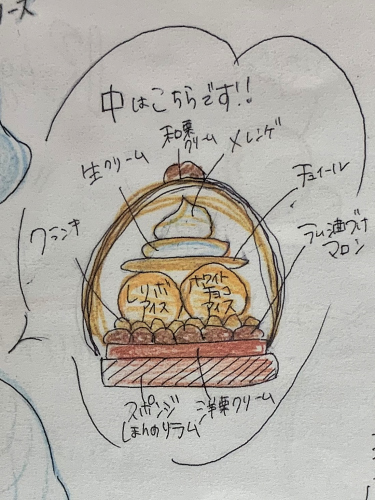 ース
中はこちらです!!
和栗
クリーム
メレンゲ
生クリーム
チュイール
クランキ
ラム酒づけ
マロン
しリボ
アイス
ホワイト
チョコ
アイス
スポンジ
ほんのりラム
洋栗クリーム